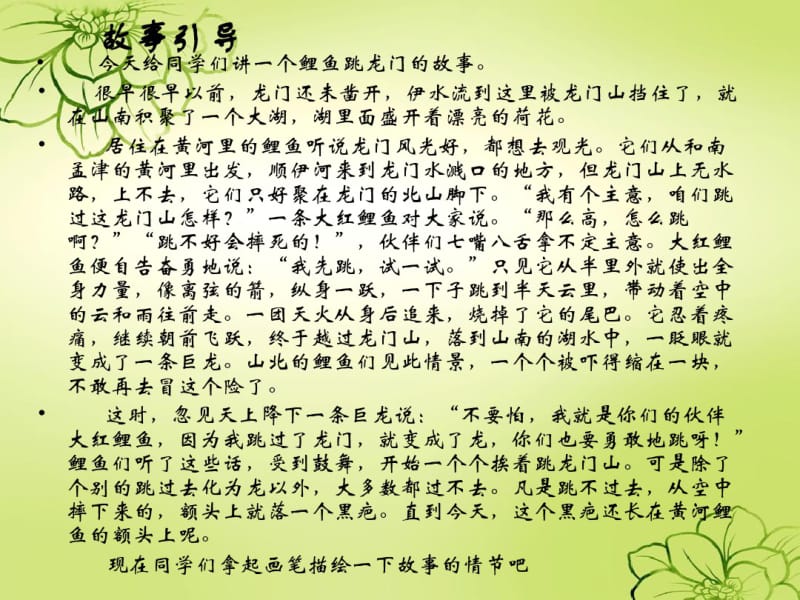 故事引导
• 今天给同学们讲一个鲤鱼跳龙门的故事。
• 很早很早以前，龙门还未凿开，伊水流到这里被龙门山挡住了，就
在山南积聚了一个大湖，湖里面盛开着漂亮的荷花。
• 居住在黄河里的鲤鱼听说龙门风光好，都想去观光。它们从和南
孟津的黄河里出发，顺伊河来到龙门水溅口的地方，但龙门山上无水
路，上不去，它们只好聚在龙门的北山脚下。“我有个主意，咱们跳
过这龙门山怎样？”一条大红鲤鱼对大家说。“那么高，怎么跳
啊？”“跳不好会摔死的！”，伙伴们七嘴八舌拿不定主意。大红鲤
鱼便自告奋勇地说：“我先跳，试一试。”只见它从半里外就使出全
身力量，像离弦的箭，纵身一跃，一下子跳到半天云里，带动着空中
的云和雨往前走。一团天火从身后追来，烧掉了它的尾巴。它忍着疼
痛，继续朝前飞跃，终于越过龙门山，落到山南的湖水中，一眨眼就
变成了一条巨龙。山北的鲤鱼们见此情景，一个个被吓得缩在一块，
不敢再去冒这个险了。
• 这时，忽见天上降下一条巨龙说：“不要怕，我就是你们的伙伴
大红鲤鱼，因为我跳过了龙门，就变成了龙，你们也要勇敢地跳呀！”
鲤鱼们听了这些话，受到鼓舞，开始一个个挨着跳龙门山。可是除了
个别的跳过去化为龙以外，大多数都过不去。凡是跳不过去，从空中
摔下来的，额头上就落一个黑疤。直到今天，这个黑疤还长在黄河鲤
鱼的额头上呢。
现在同学们拿起画笔描绘一下故事的情节吧